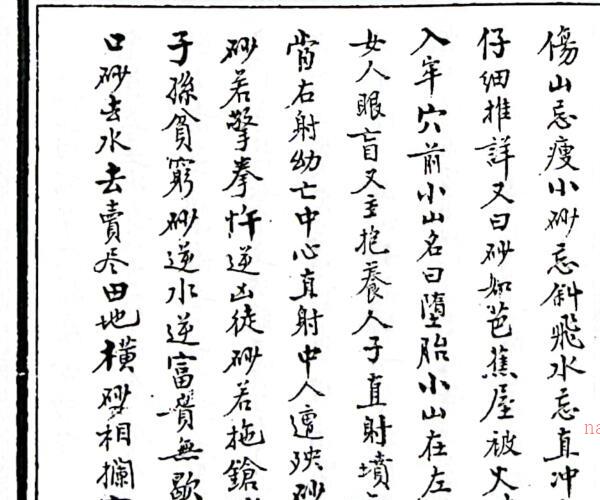 傷山忌瘦小砂忌斜飛水忌直冲
仔細推詳又曰砂如芭蕉屋被火
入牢穴前小山名曰墮胎小山在左
女人眼盲又主抱養人子直射墳
當右射幼亡中心直射中人遭殃砂
砂若擎拳忤逆凶徒砂若拖鎗
子孫貧窮砂逆水逆富貴無歇
口砂去水去賣尽田地橫砂相攔
na